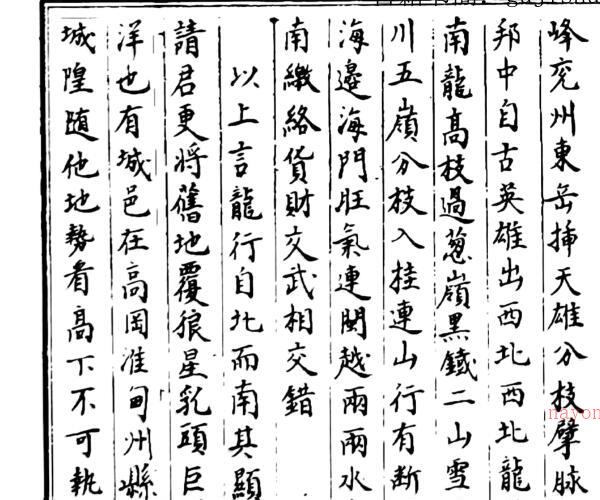 峰兖州東岳揷天雄分枝擘脉
邦中自古英雄出西北西北龍
南龍髙枝過葱嶺黒鐡二山雪
川五嶺分枝入桂連山行有断
海邉海門旺氣連閩越兩兩水
南繳絡貨財文武相交錯
以上言龍行自北而南其顯
請君更将舊地覆狼星乳頭巨
洋也有城邑在高岡淮甸州縣
城隍随他地勢看高下不可執
nayon